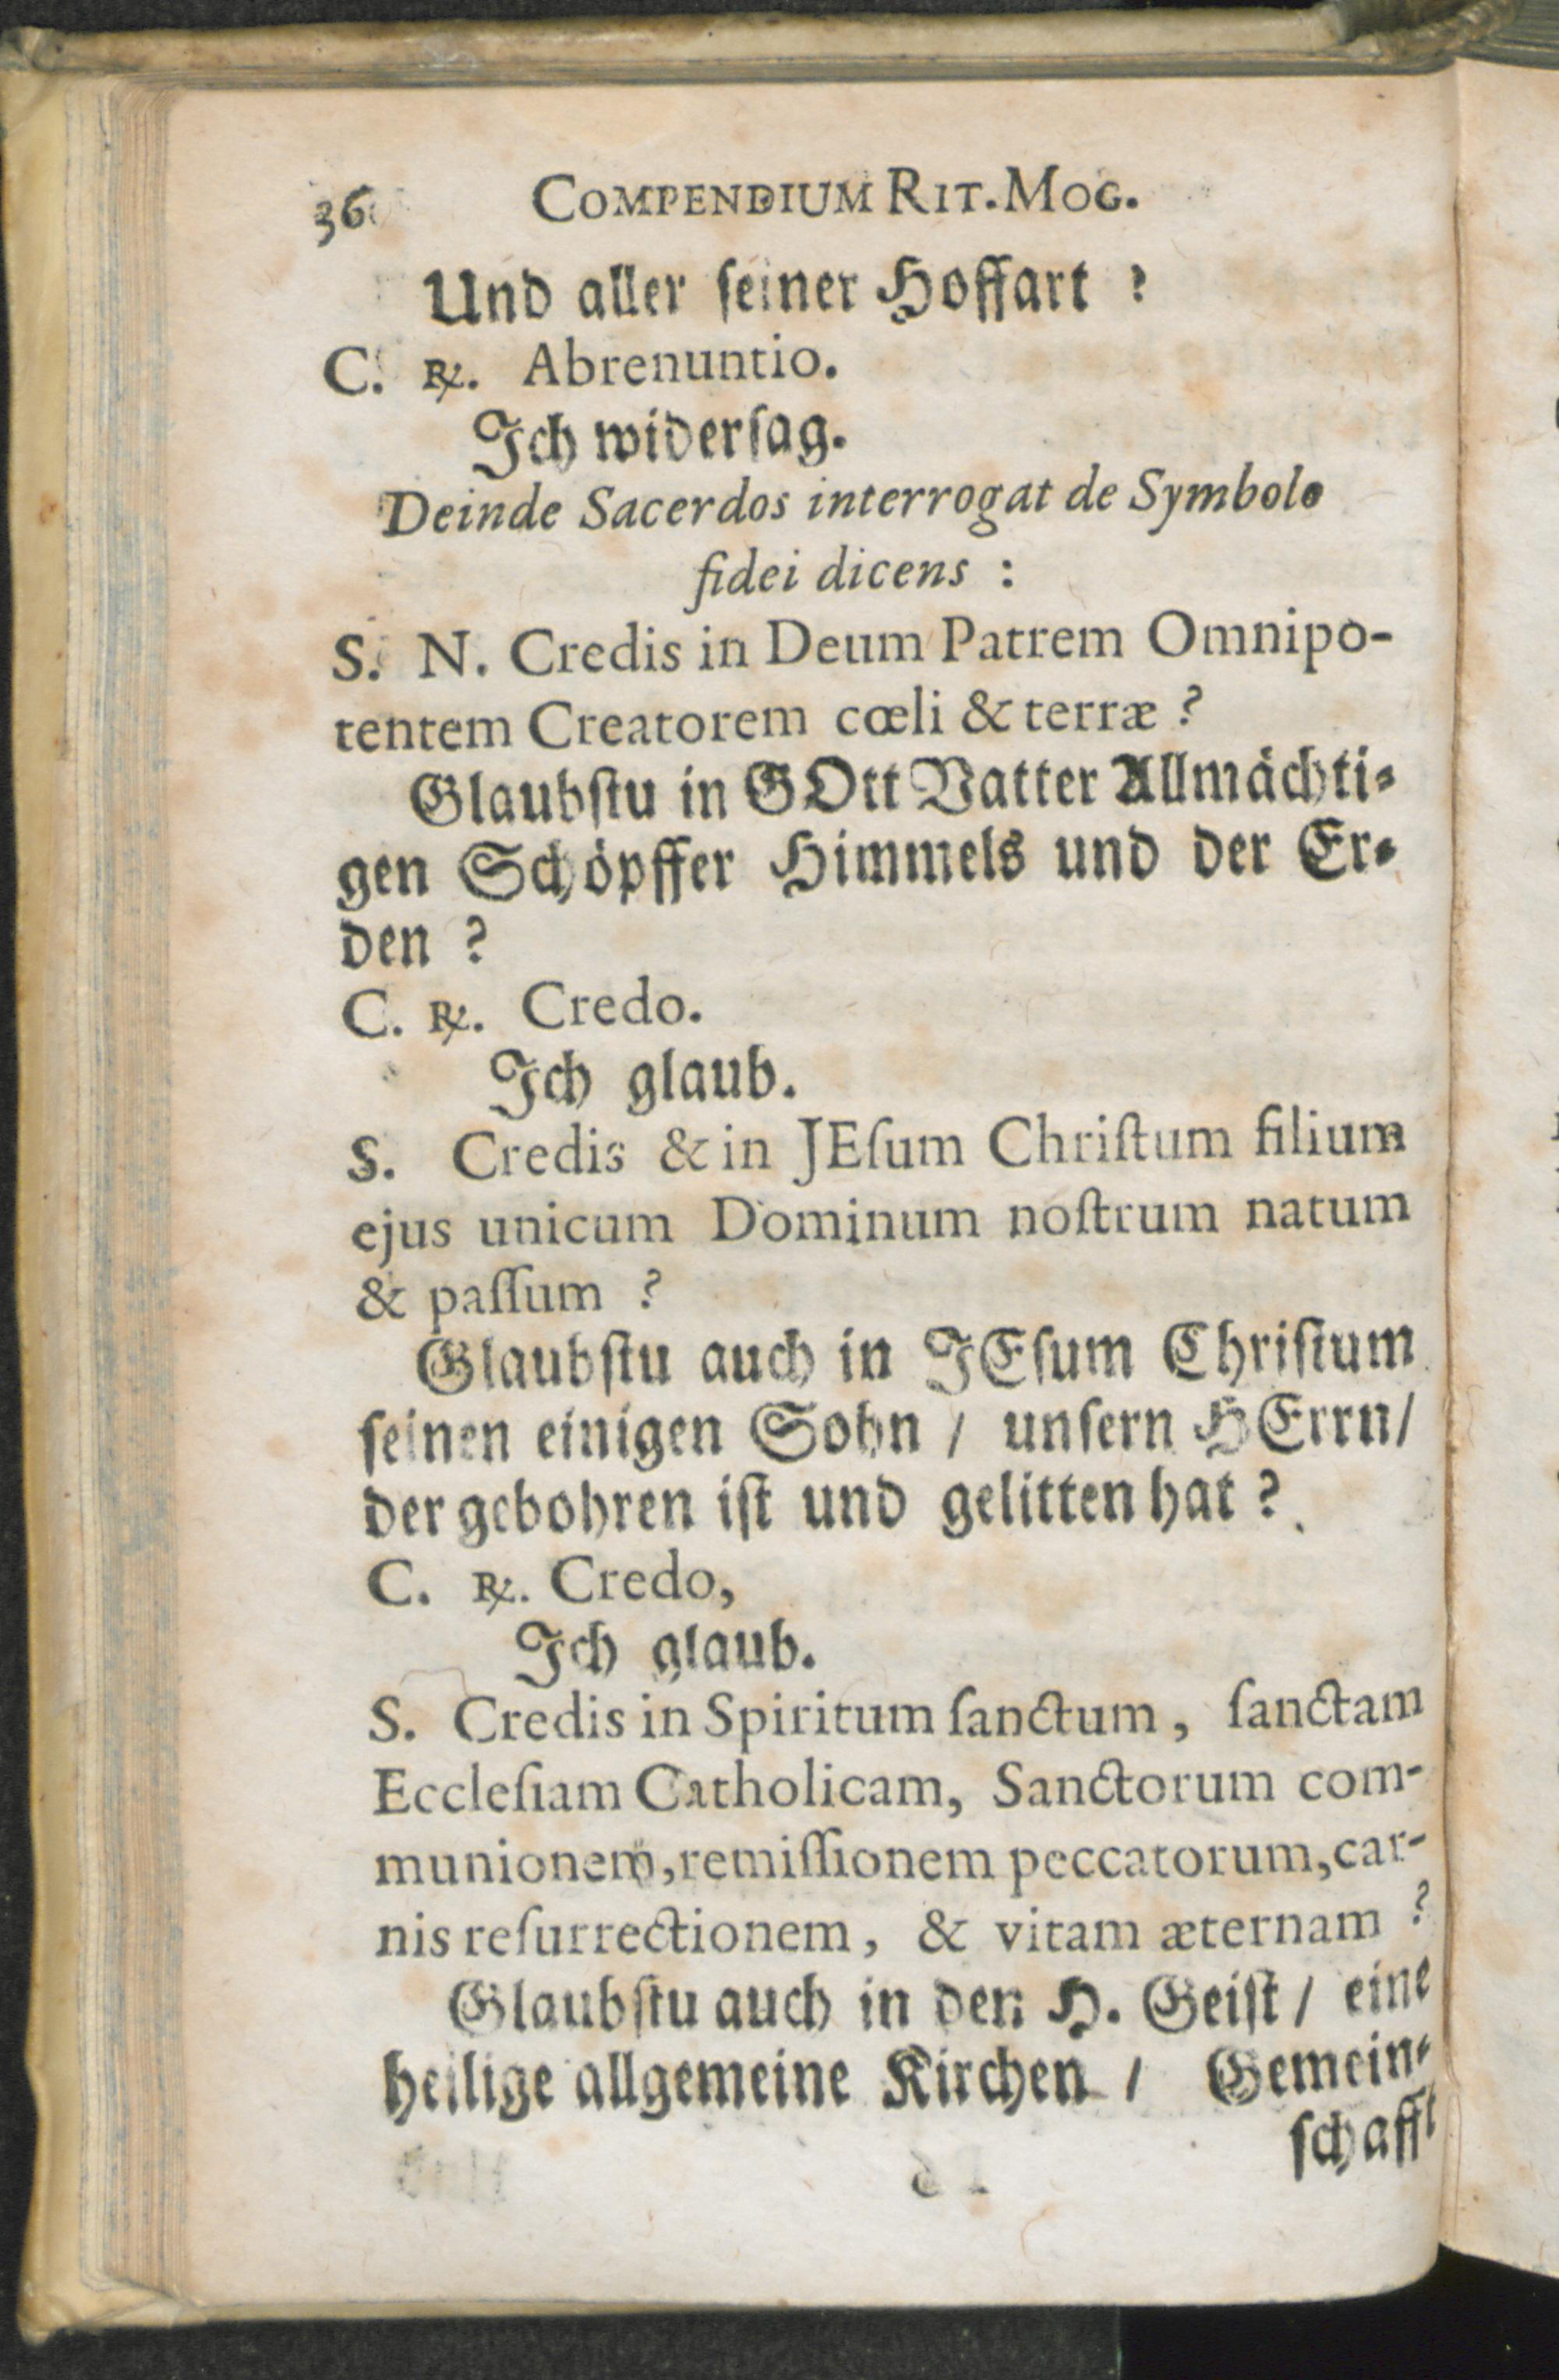 36 COMPENDIUM RIT. MOG.
Und aller ſeiner Hoffart ?
C. ℟. Abrenuntio.
Ich widerſag.
Deinde Sacerdos interrogat de Symbolo
fidei dicens :
S. N. Credis in Deum Patrem Omnipo-
tentem Creatorem cœli & terræ ?
Glaubſtu in GOtt Vatter Allmächti⸗
gen Schöpffer Himmels und der Er⸗
den ?
C. ℟. Credo.
Ich glaub.
S. Credis & in JEſum Chriſtum filium
ejus unicum Dominum noſtrum natum
& paſſum ?
Glaubſtu auch in JEſum Chriſtum
ſeinen einigen Sohn / unſern HErrn/
der gebohren iſt und gelitten hat ?
C. ℟. Credo,
Ich glaub.
S. Credis in Spiritum ſanctum, ſanctam
Eccleſiam Catholicam, Sanctorum com-
munionem, remiſſionem peccatorum, car-
nis reſurrectionem, & vitam æternam ?
Glaubſtu auch in den H. Geiſt / eine
heilige allgemeine Kirchen / Gemein⸗
ſchafft